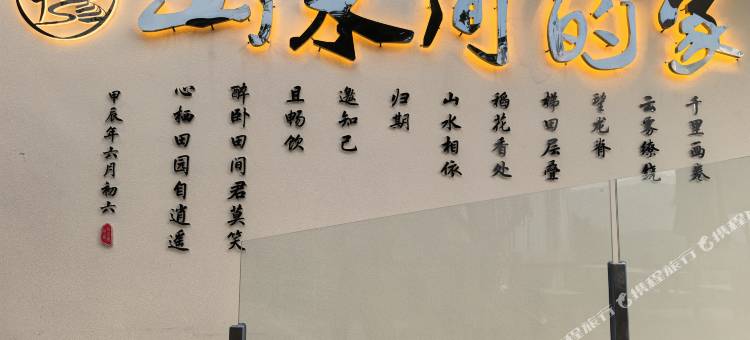 山水间的家
千里画卷
云雾缭绕
望龙脊
梯田层叠
稻花香处
山水相依
归期
邀知己
且畅饮
醉卧田间君莫笑
心栖田园自逍遥
甲辰年六月初六
携程旅行
携程旅行